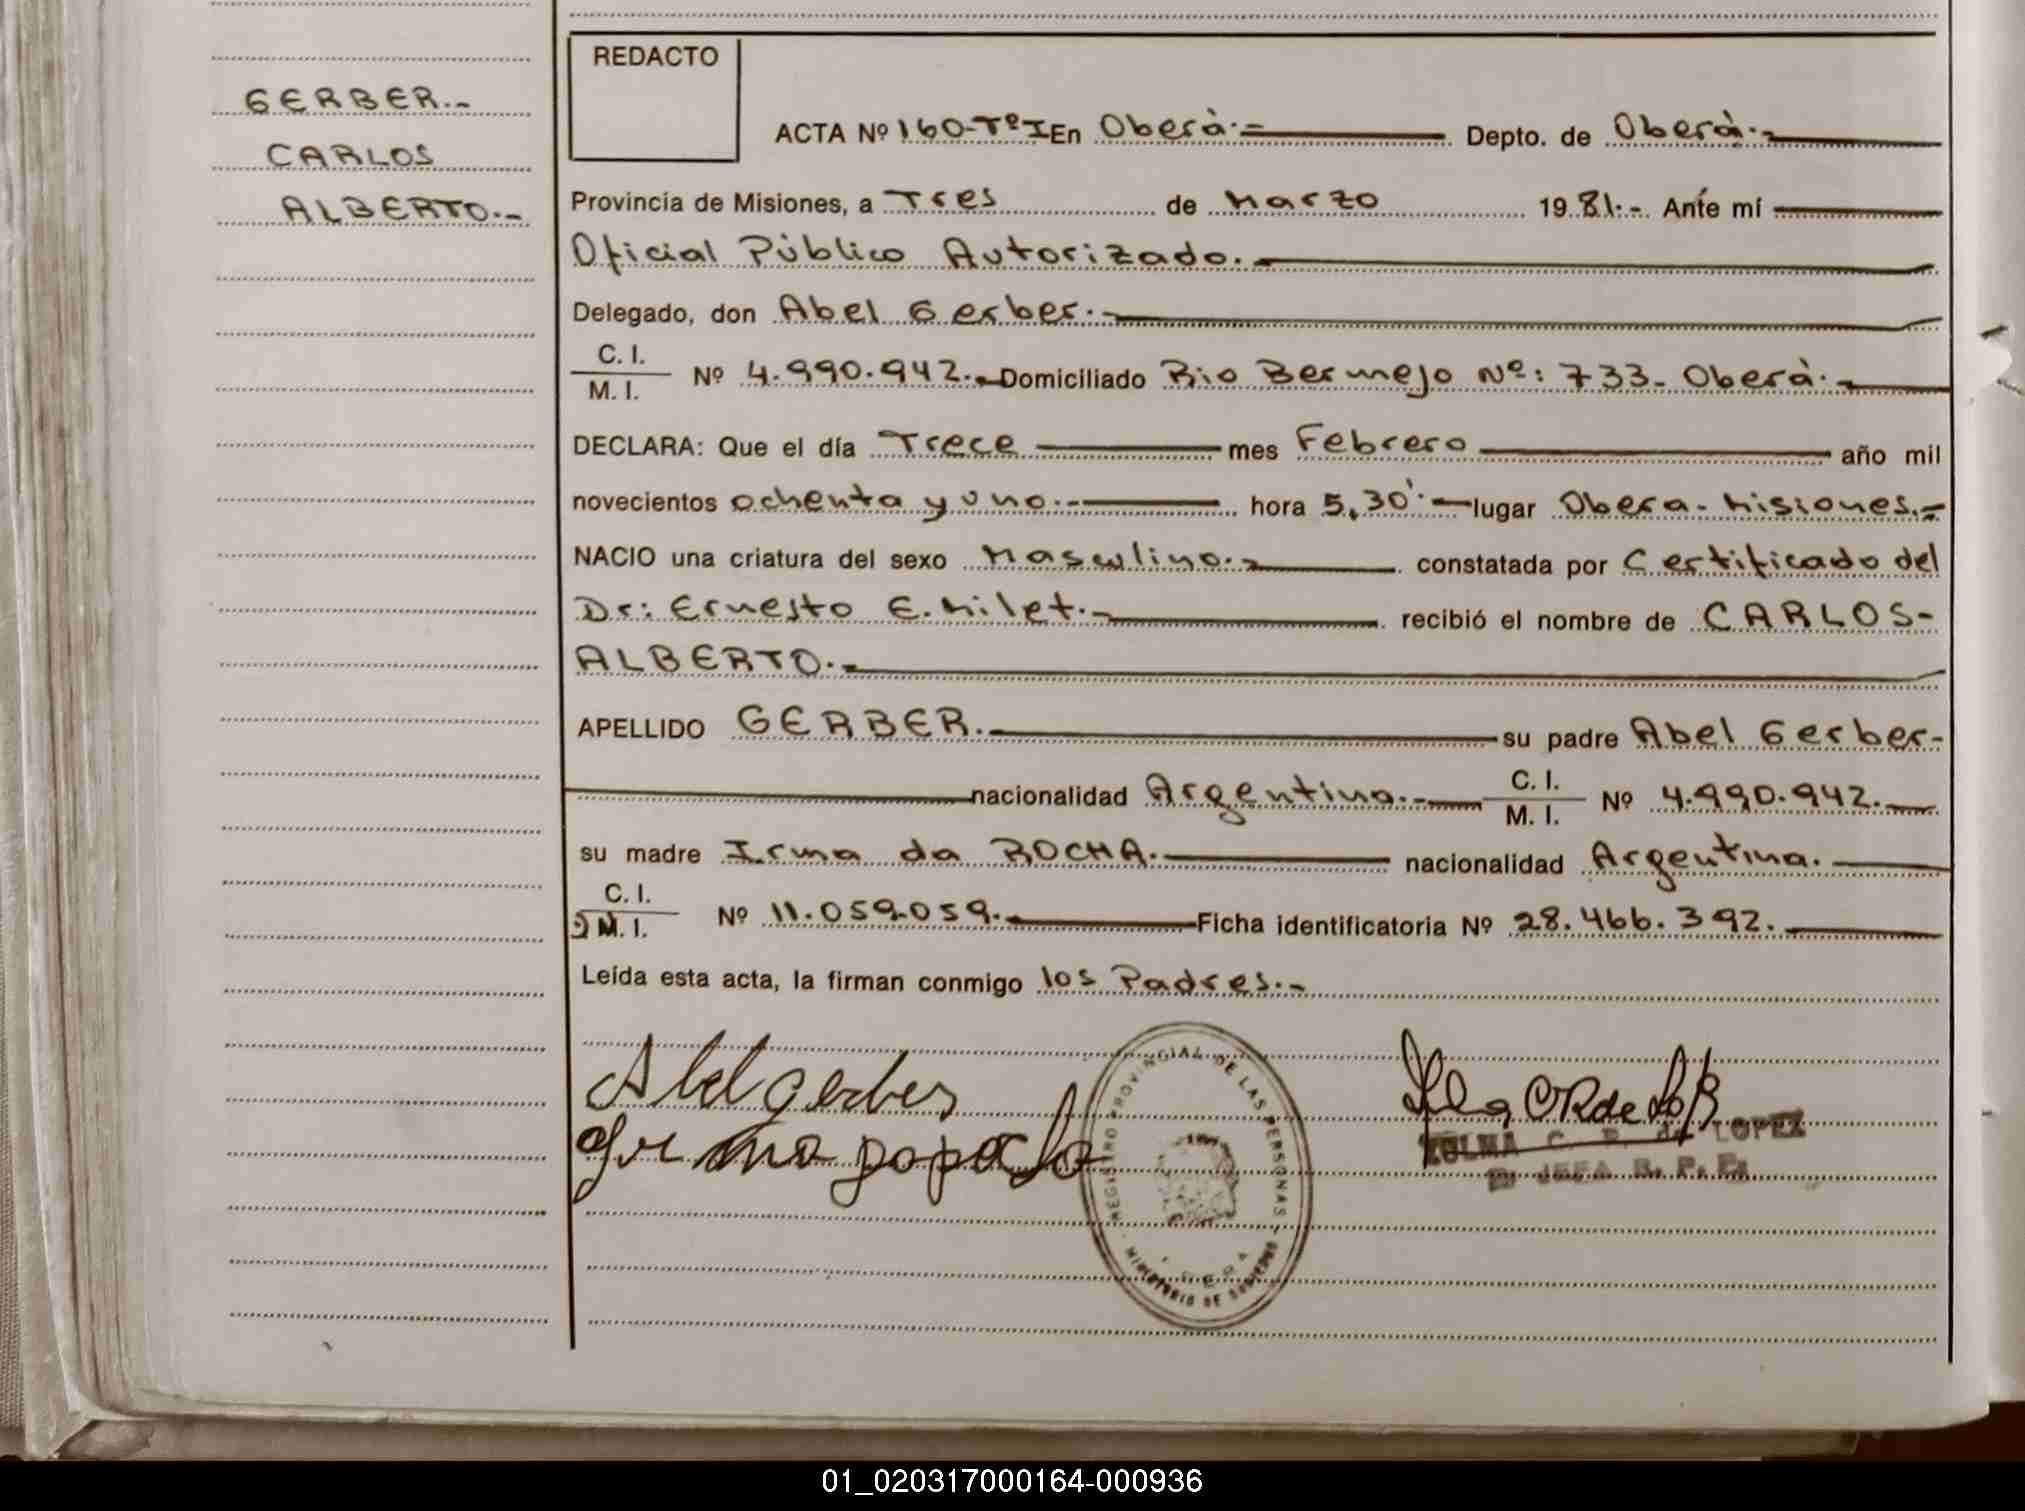 GERBER.-
CARLOS
ALBERTO.-
REDACTO
ACTA Nº 160-TºI En Oberà.- Depto. de Oberà.-
Provincia de Misiones, a Tres de Marzo 19 81.- Ante mí
Oficial Público Autorizado.-
Delegado, don Abel Gerber.-
C. I.
M. I. Nº 4.990.942.- Domiciliado Rio Bermejo Nº: 733- Oberà.-
DECLARA: Que el día Trece mes Febrero año mil
novecientos ochenta y uno.- hora 5,30'.- lugar Obera- Misiones.-
NACIO una criatura del sexo Masculino.- constatada por Certificado del
Dr: Ernesto E. Milet.- recibió el nombre de CARLOS-
ALBERTO.-
APELLIDO GERBER.- su padre Abel Gerber-
nacionalidad Argentina.- C. I.
M. I. Nº 4.990.942.-
su madre Irma da ROCHA.- nacionalidad Argentina.
C. I.
M. I. Nº 11.059.059.- Ficha identificatoria Nº 28.466.392.-
Leída esta acta, la firman conmigo los Padres.-
Abel gerber
REGISTRO PROVINCIAL DE LAS PERSONAS
MINISTERIO DE GOBIERNO
C. R. de LOPEZ
JEFA R. P. P.
01_020317000164-000936